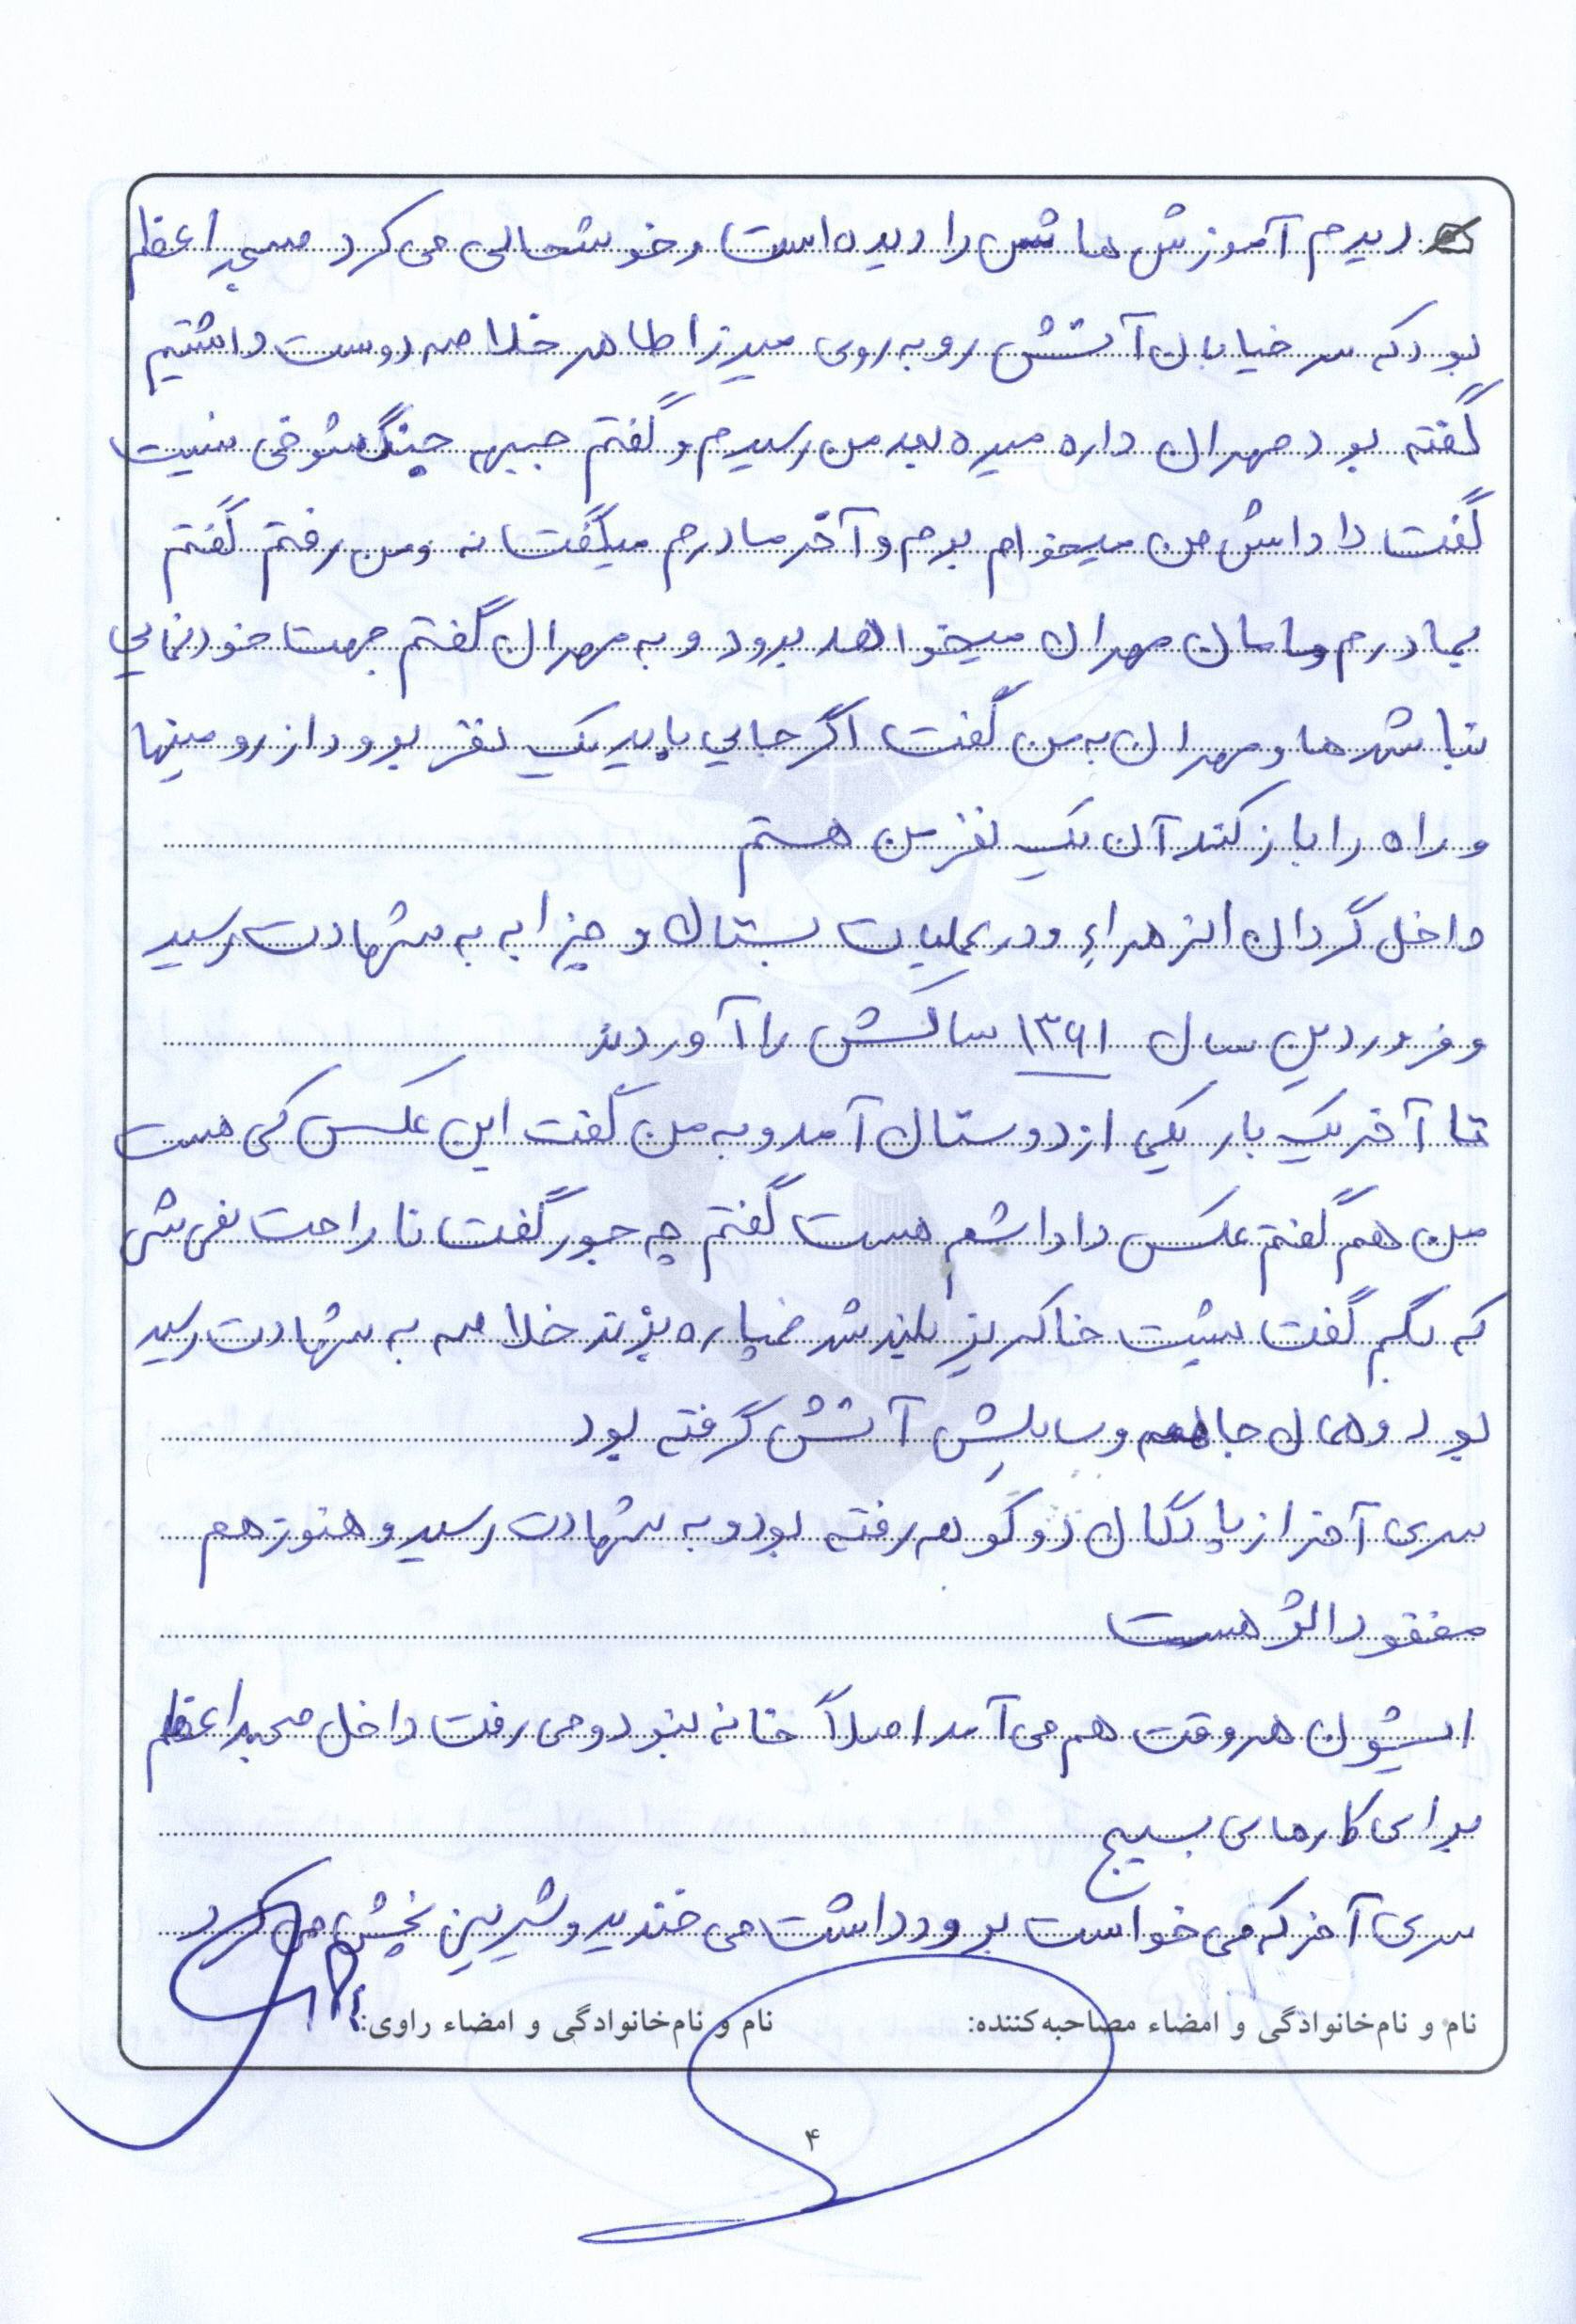 دیدم آموزش هاش را دیده است و خوشحالی می کرد مسجد اعظم
بود که سر خیابان آتش روبه روی میرزا طاهر خلاصه دوست داشتیم
گفته بود مهران داره میره بعد من رسیدم و گفتم جبهه جنگ شوخی نیست
گفت داداش من میخوام برم و آخر مادرم میگفت نه و من رفتم گفتم
بمادرم مامان مهران میخواهد برود و به مهران گفتم جهت خودنمایی
نباشد ها و مهران به من گفت اگر جایی باید یک نفر برود از رو مینها
و راه را باز کند آن یک نفر من هستم
داخل گردان الزهراء و در عملیات بستان و چزابه به شهادت رسید
و فروردین سال ۱۳۶۱ ساکش را آوردند
تا آخر یک بار یکی از دوستان آمد و به من گفت این عکس کی هست
من هم گفتم عکس داداشم هست گفتم چه جور گفت ناراحت نمی شی
که بگم گفت پشت خاکریز بلند شد خمپاره بزند خلاصه به شهادت رسید
بود و همان جا وسایلش آتش گرفته بود
سری آخر از پادگان دوکوهه رفته بود و به شهادت رسید و هنوز هم
مفقود الاثر هست
ایشون هر وقت هم می آمد اصلاً خانه نبود و می رفت داخل مسجد اعظم
برای کارهای بسیج
سری آخر که می خواست برود داشت می خندید و شیرین پخش می کرد
نام و نام‌خانوادگی و امضاء مصاحبه‌کننده: نام و نام‌خانوادگی و امضاء راوی:
۴